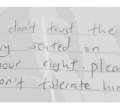 don't trust the
y seated on
our right, pleas
on't tolerate him